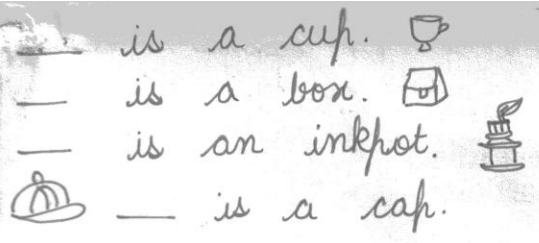 ___ is a cup.
___ is a box.
___ is an inkpot.
___ is a cap.